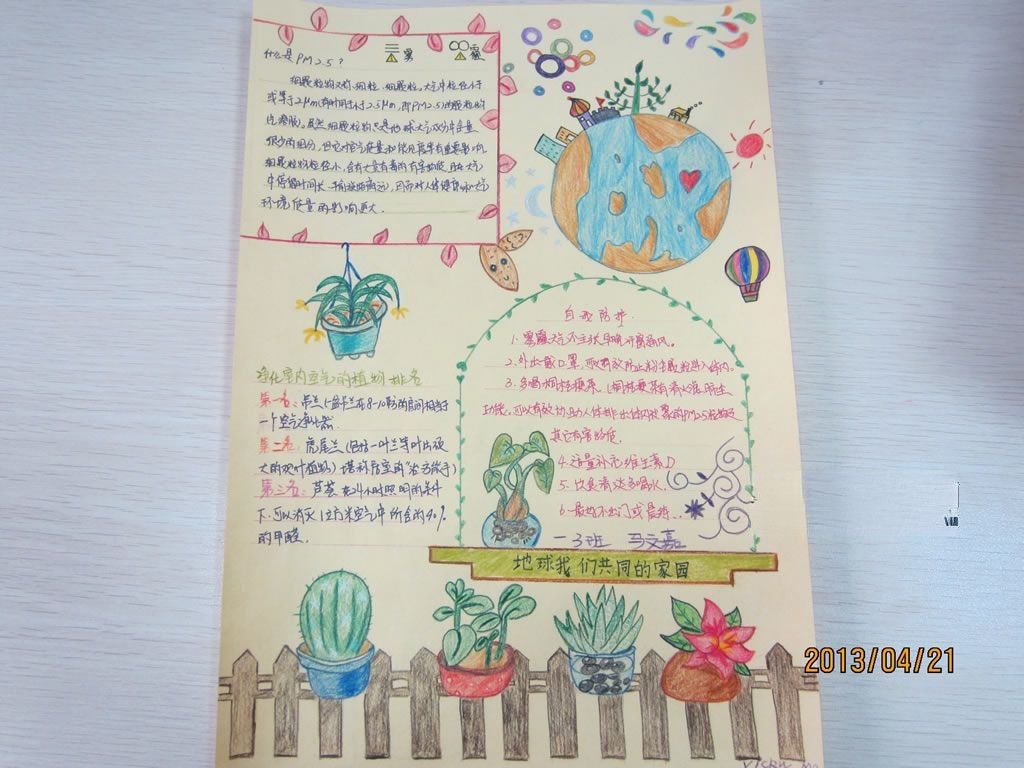 什么是PM2.5?
雾 霾
细颗粒物又称细粒、细颗粒。大气中粒径小于
或等于2μm(有时用小于2.5μm,即PM2.5)的颗粒物
虽然细颗粒物只是地球大气成分中含量
很少的组分,但它对空气质量和能见度等有重要影响
细颗粒物粒径小,含有大量有毒有害物质且在大气
中停留时间长、输送距离远,因而对人体健康和大气
环境质量的影响更大.
净化室内空气的植物排名
第一名:吊兰(一盆吊兰在8-10的房间相当于
一个空气净化器.
第二名:虎尾兰(包括一叶兰等叶片硕
大的观叶植物)堪称居室的"治污能手)
第三名:芦荟在24小时照明的条件
下可以消灭1立方米空气中所含的90%
的甲醛.
自我防护.
1.雾霾天气不主张早晚开窗通风。
2.外出戴口罩,可以有效防止粉尘颗粒进入体内。
3.多喝桐桔梗茶
功能,可以有效协助人体排出体内积累的PM2.5粒物及
其它有害物质.
4.适量补充维生素D
5.饮食清淡多喝水.
6.最好不出门或晨练.
一3班 马文嘉
地球我们共同的家园
2013/04/21